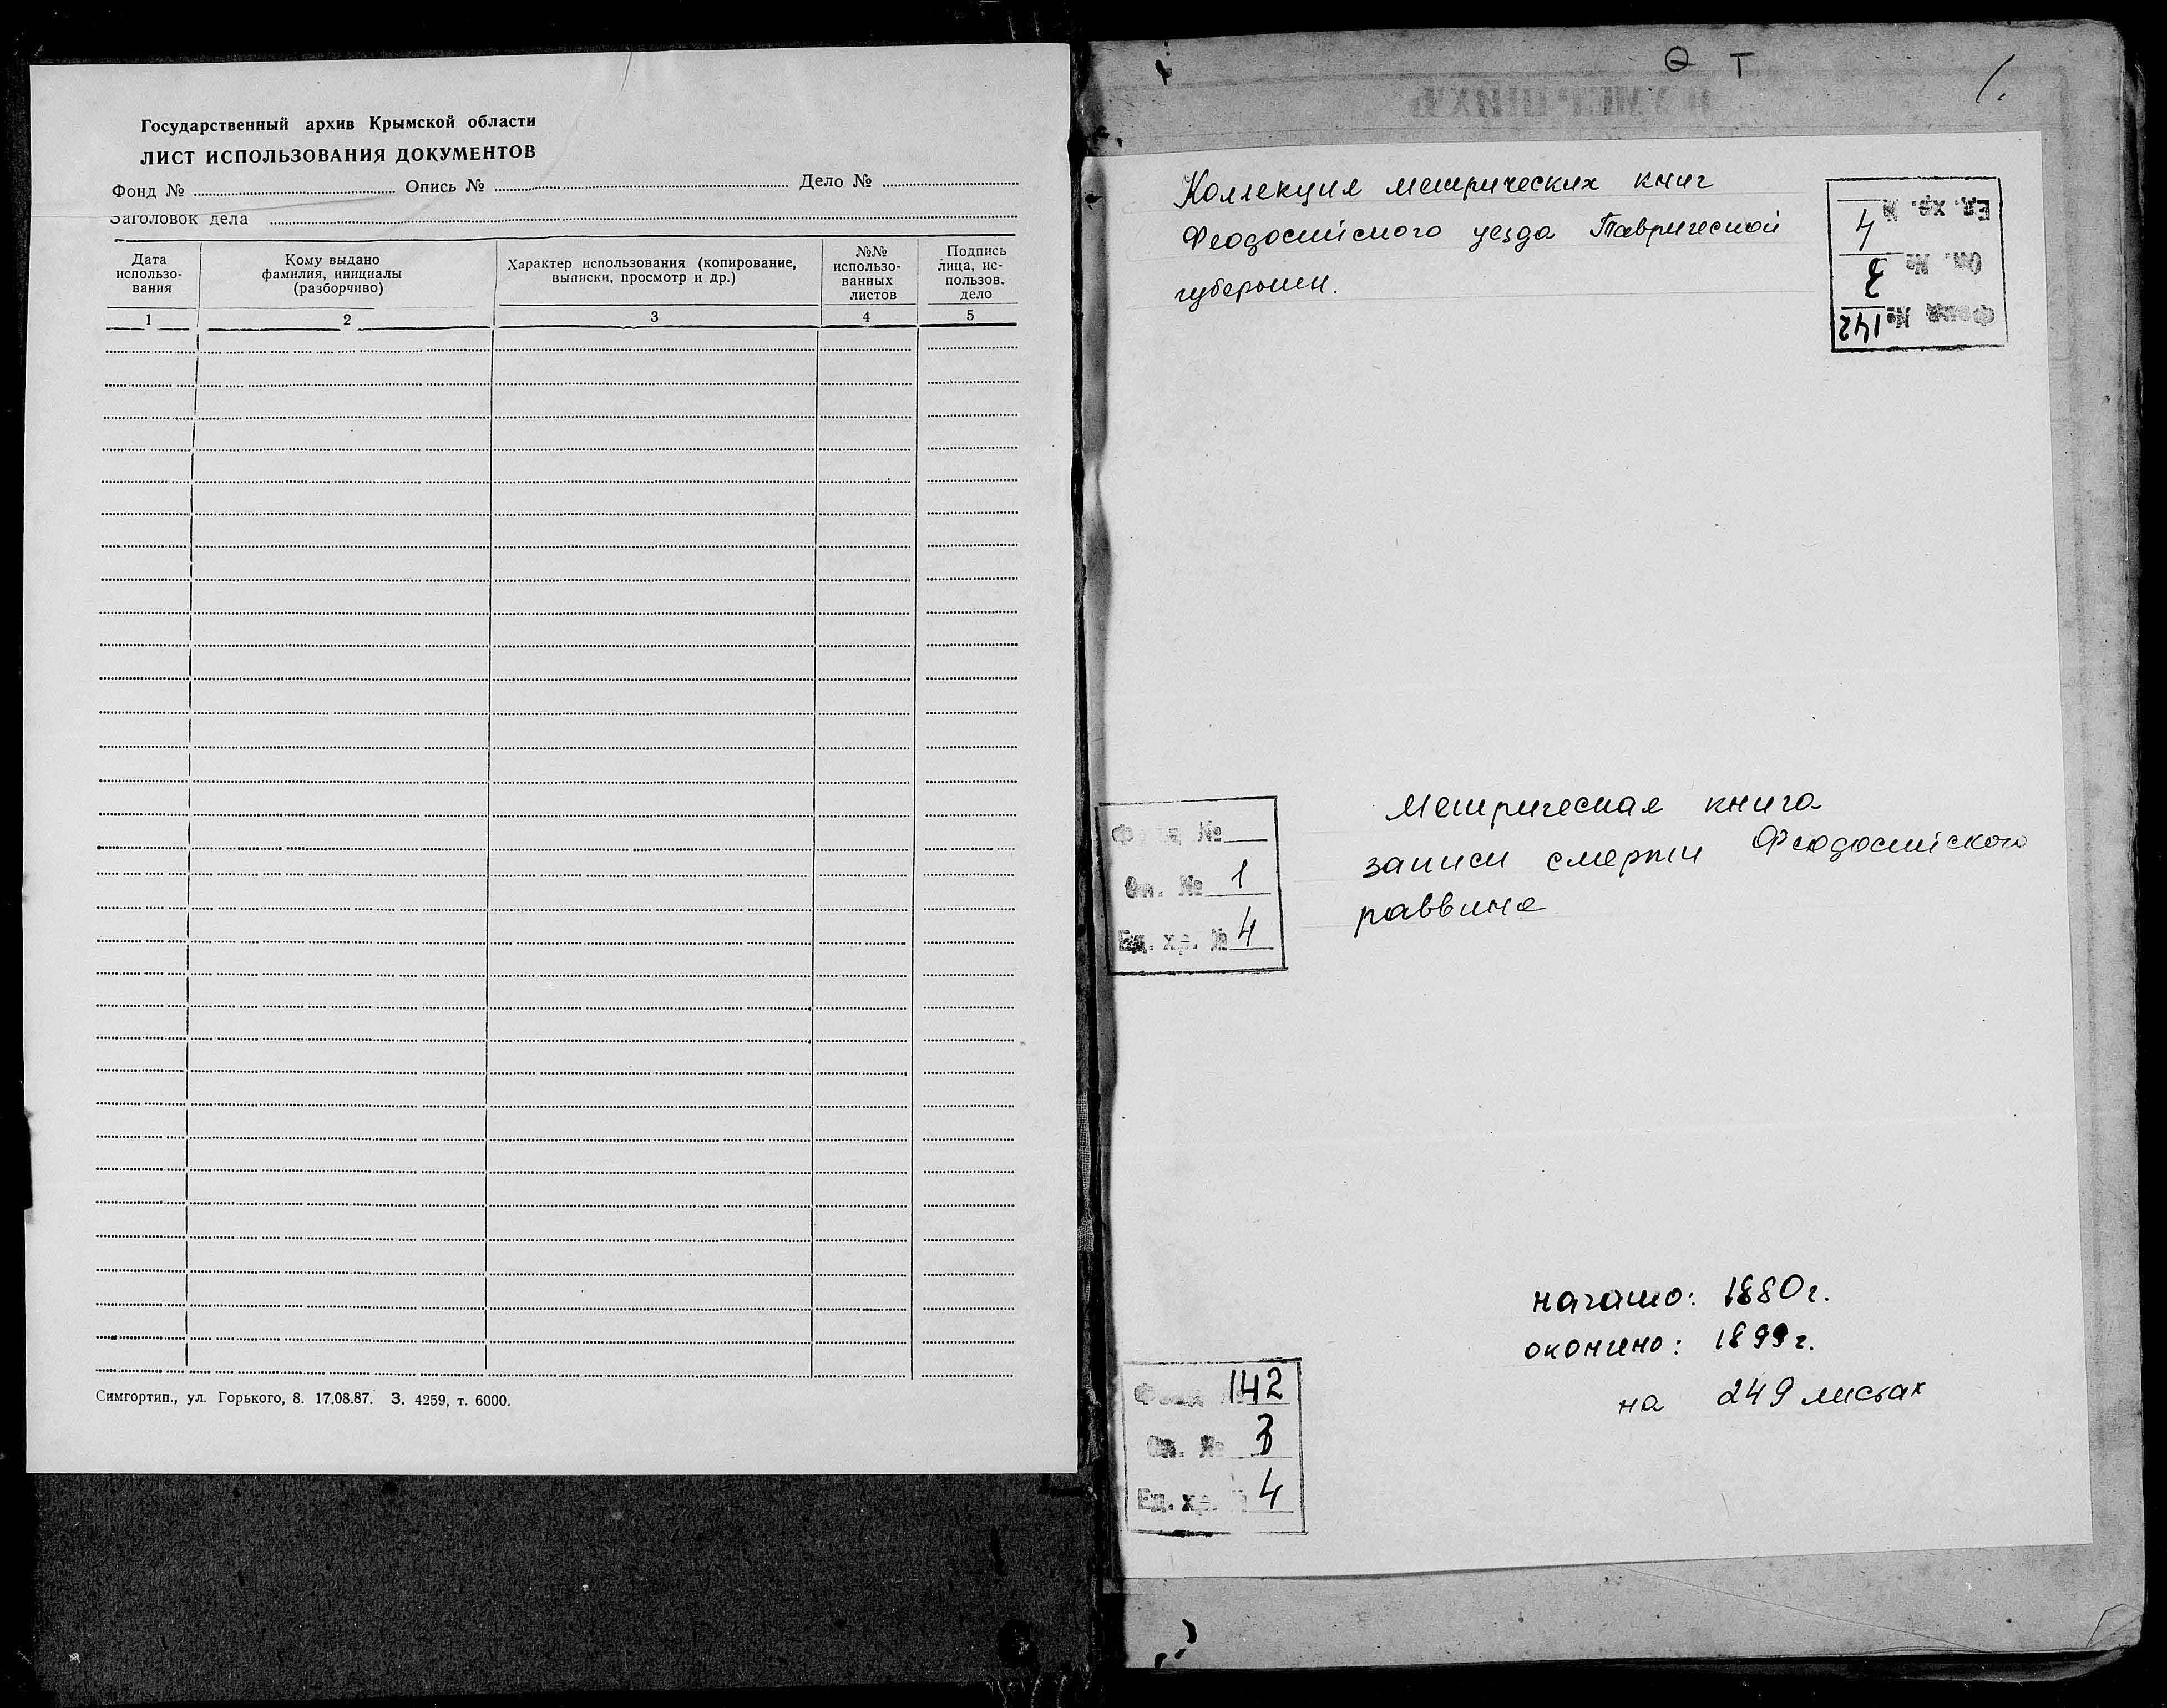 Государственный архив Крымской области
ЛИСТ ИСПОЛЬЗОВАНИЯ ДОКУМЕНТОВ
Фонд № Опись № Дело №
Заголовок дела
Дата использо-вания
Кому выдано фамилия, инициалы (разборчиво)
Характер использования (копирование, выписки, просмотр и др.)
№№ использо-ванных листов
Подпись лица, ис-пользов. дело
1 2 3 4 5
Симгортип., ул. Горького, 8. 17.08.87. З. 4259, т. 6000.
Θ Т
1.
УМЕРШИХЪ
Коллекция метрических книг
Феодосийского уезда Таврической
губернии.
Ед. хр. № 4
Оп. № 3
Фонд № 142
Метрическая книга
записи смерти Феодосийского
раввина
Фонд №
Оп. № 1
Ед. хр. № 4
начато: 1880г.
окончено: 1899г.
на 249 листах
Фонд № 142
Оп. № 3
Ед. хр. № 4